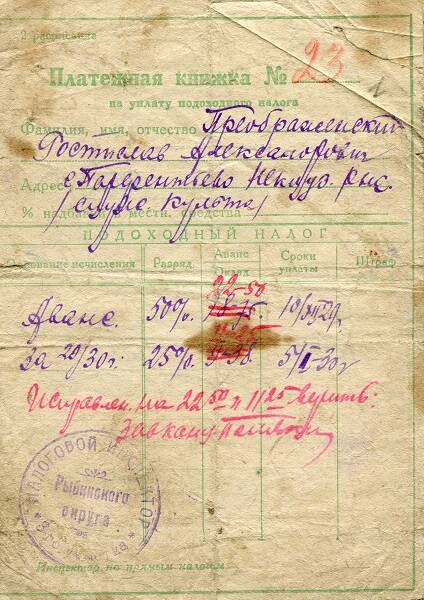 2 расписания
Платежная книжка № 23
1
на уплату подоходного налога
Фамилия, имя, отчество Преображенский
Ростислав Александрович
Адрес с. Парфентьево Некоуз. Рыб.
/служ. культа/
% надбавок в мести. средства
ПОДОХОДНЫЙ НАЛОГ
Основание исчисления Разряд. Аванс Оклад Сроки уплаты Штраф
22-50
Аванс. 50%. 10/XII-29г.
11-25
За 29/30г. 25%.
Исправлен. на 22 50 и 11 25 верить.
НАЛОГОВОЙ ИНСПЕКТОР
Рыбинского
округа
Инспектор по прямым налогам